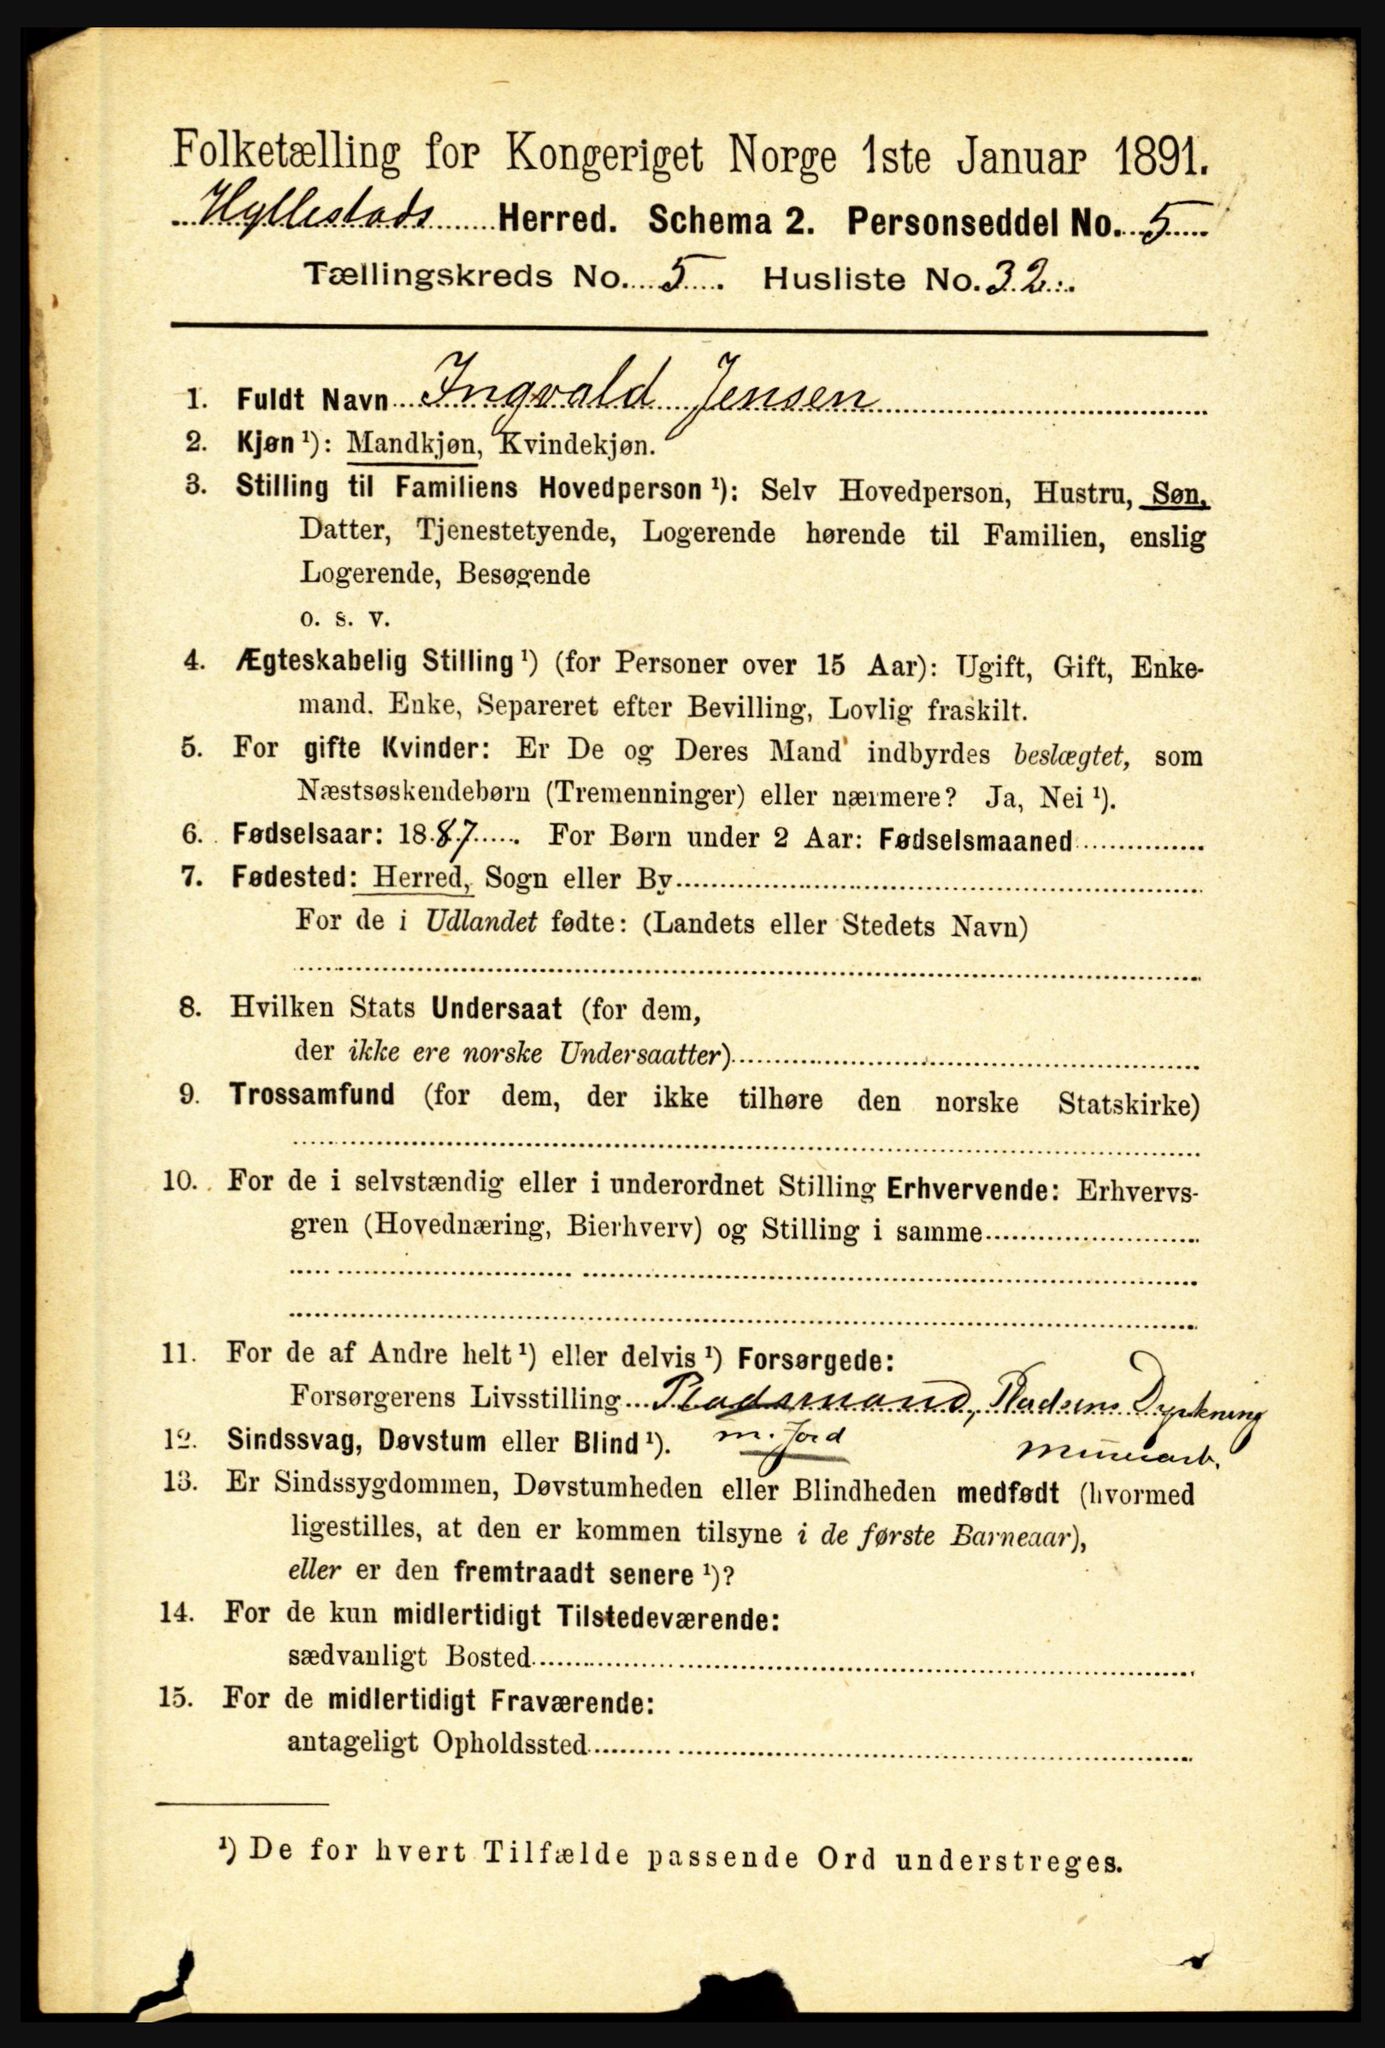 Folketælling for Kongeriget Norge 1ste Januar 1891.
Hyllestads Herred. Schema 2. Personseddel No. 5
Tællingskreds No. 5. Husliste No. 32
1. Fuldt Navn Ingvald Jensen
2. Kjøn ¹): Mandkjøn, Kvindekjøn.
3. Stilling til Familiens Hovedperson ¹): Selv Hovedperson, Hustru, Søn,
Datter, Tjenestetyende, Logerende hørende til Familien, enslig
Logerende, Besøgende
o. s. v.
4. Ægteskabelig Stilling ¹) (for Personer over 15 Aar): Ugift, Gift, Enke-
mand. Enke, Separeret efter Bevilling, Lovlig fraskilt.
5. For gifte Kvinder: Er De og Deres Mand indbyrdes beslægtet, som
Næstsøskendebørn (Tremenninger) eller nærmere? Ja, Nei ¹).
6. Fødselsaar: 1887. For Børn under 2 Aar: Fødselsmaaned
7. Fødested: Herred, Sogn eller By
For de i Udlandet fødte: (Landets eller Stedets Navn)
8. Hvilken Stats Undersaat (for dem,
der ikke ere norske Undersaatter)
9. Trossamfund (for dem, der ikke tilhøre den norske Statskirke)
10. For de i selvstændig eller i underordnet Stilling Erhvervende: Erhvervs-
gren (Hovednæring, Bierhverv) og Stilling i samme
11. For de af Andre helt ¹) eller delvis ¹) Forsørgede:
Forsørgerens Livsstilling Pladsmand, Pladsens Dyrkning
12. Sindssvag, Døvstum eller Blind ¹). m. Jord
13. Er Sindssygdommen, Døvstumheden eller Blindheden medfødt (hvormed
ligestilles, at den er kommen tilsyne i de første Barneaar),
eller er den fremtraadt senere ¹)?
14. For de kun midlertidigt Tilstedeværende:
sædvanligt Bosted
15. For de midlertidigt Fraværende:
antageligt Opholdssted
¹) De for hvert Tilfælde passende Ord understreges.